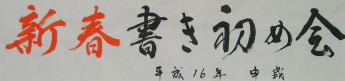 新春書き初め会
平成16年 申歳